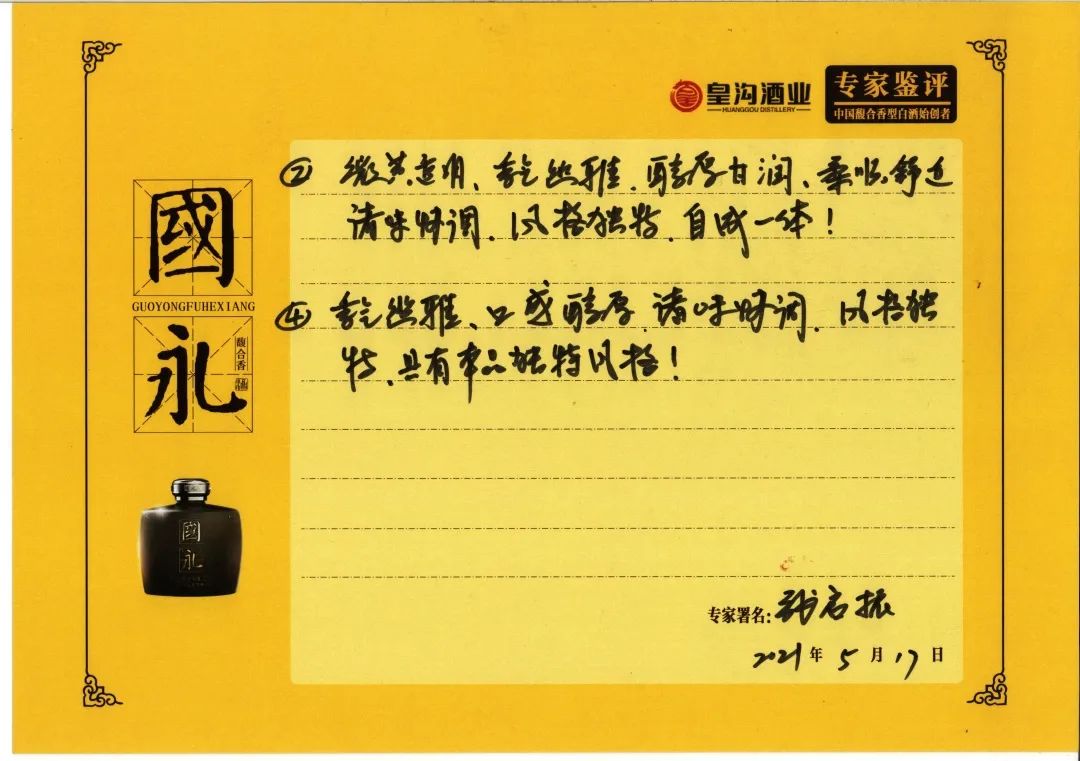 皇沟酒业
HUANGGOU DISTILLERY
专家鉴评
中国馥合香型白酒始创者
國
GUOYONGFUHEXIANG
永
馥合香
國
永
② 微黄透明、香气幽雅、醇厚甘润、柔顺舒适
诸味协调、风格独特、自成一体！
④ 香气幽雅、口感醇厚、诸味协调、风格独
特、具有本品独特风格！
专家署名:
2021年5月17日